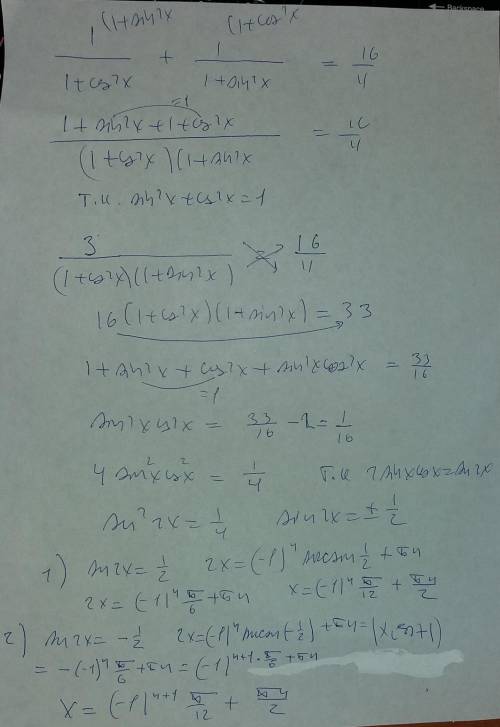 Backspace
1 (1+sin²x   (1+cos²x
1/(1+cos²x) + 1/(1+sin²x) = 16/11
=1
(1+sin²x+1+cos²x)/((1+cos²x)(1+sin²x) = 16/11
т.к. sin²x+cos²x=1
3/((1+cos²x)(1+sin²x) = 16/11
16(1+cos²x)(1+sin²x) = 33
1+sin²x+cos²x+sin²xcos²x = 33/16
=1
sin²xcos²x = 33/16 -2=1/16
4 sin²xcos²x = 1/4   т.к 2sinxcosx=sin2x
sin²2x=1/4   sin2x=±1/2
1) sin2x=1/2   2x=(-1)ⁿ arcsin 1/2 + πn
2x=(-1)ⁿ π/6 + πn   x=(-1)ⁿ π/12 + πn/2
2) sin2x=-1/2   2x=(-1)ⁿ arcsin(-1/2) + πn=
= -(-1)ⁿ π/6 + πn=(-1)ⁿ⁺¹·π/6 + πn
x=(-1)ⁿ⁺¹ π/12 + πn/2